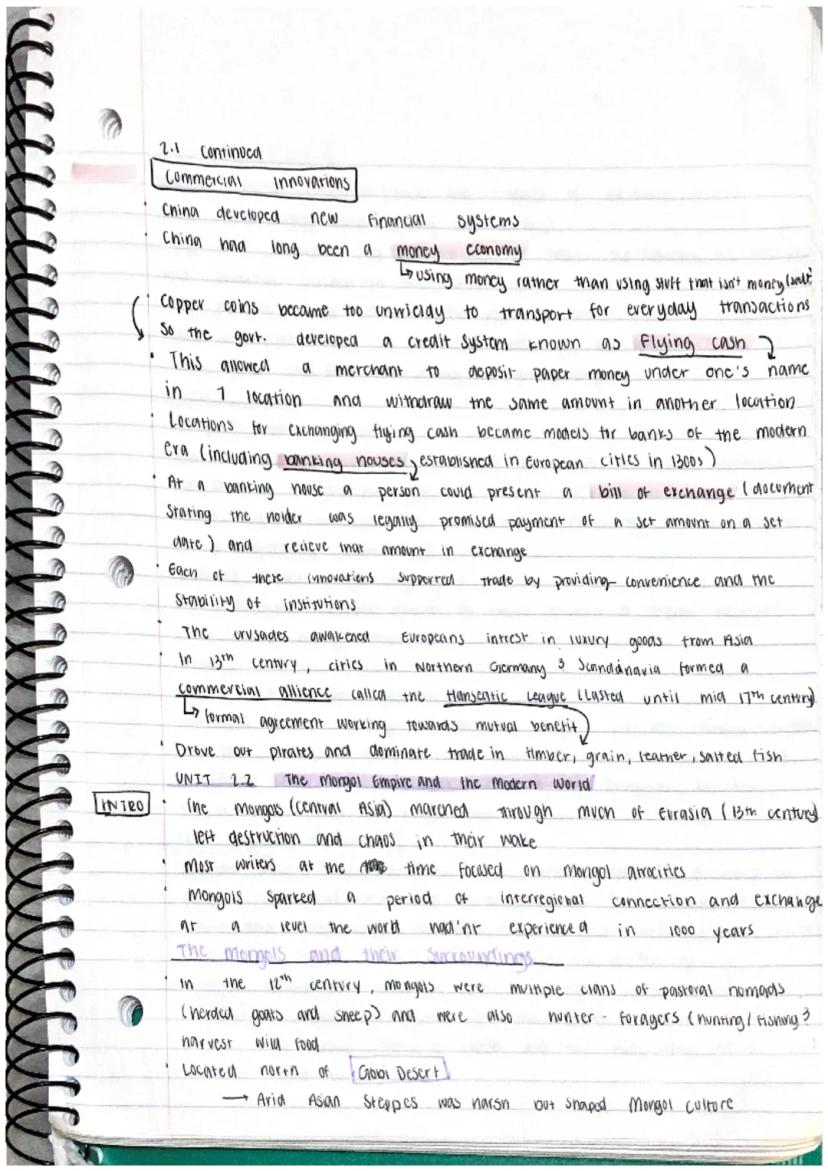 2.1 Continued
Commercial Innovations
China developed new financial systems
China had long been a money economy
using money rather than using stuff that isn't money (salt)
Copper coins became too unwieldy to transport for everyday transactions
So the govt. developed a credit system known as Flying cash
This allowed a merchant to deposit paper money under one's name
in 1 location and withdraw the same amount in another location
Locations for exchanging flying cash became models for banks of the modern
era (including banking houses, established in European cities in 1300s)
At a banking house a person could present a bill of exchange (document
stating the holder was legally promised payment of a set amount on a set
date) and recieve that amount in exchange
Each of these innovations supported trade by providing convenience and the
stability of institutions
The crusades awakened Europeans intrest in luxury goods from Asia
In 13th century, cities in Northern Germany & Scandanavia formed a
commercial allience called the Hanseatic League (lasted until mid 17th century)
formal agreement working towards mutual benefit
Drove out pirates and dominate trade in timber, grain, leather, salted fish
UNIT 2.2 The Mongol Empire and the Modern World
INTRO
The Mongols (central Asia) marched through much of Eurasia (13th century)
left destruction and chaos in their wake
Most writers at the time focused on Mongol atrocities
Mongols sparked a period of interregional connection and exchange
at a level the world had'nt experienced in 1000 years
The Mongols and their Surroundings
In the 12th century, mongols were multiple clans of pastoral nomads
(herded goats and sheep) and were also hunter-foragers (hunting/fishing &
harvest wild food
Located north of Gobi Desert
→ Arid Asian Steppes was harsh but shaped Mongol culture